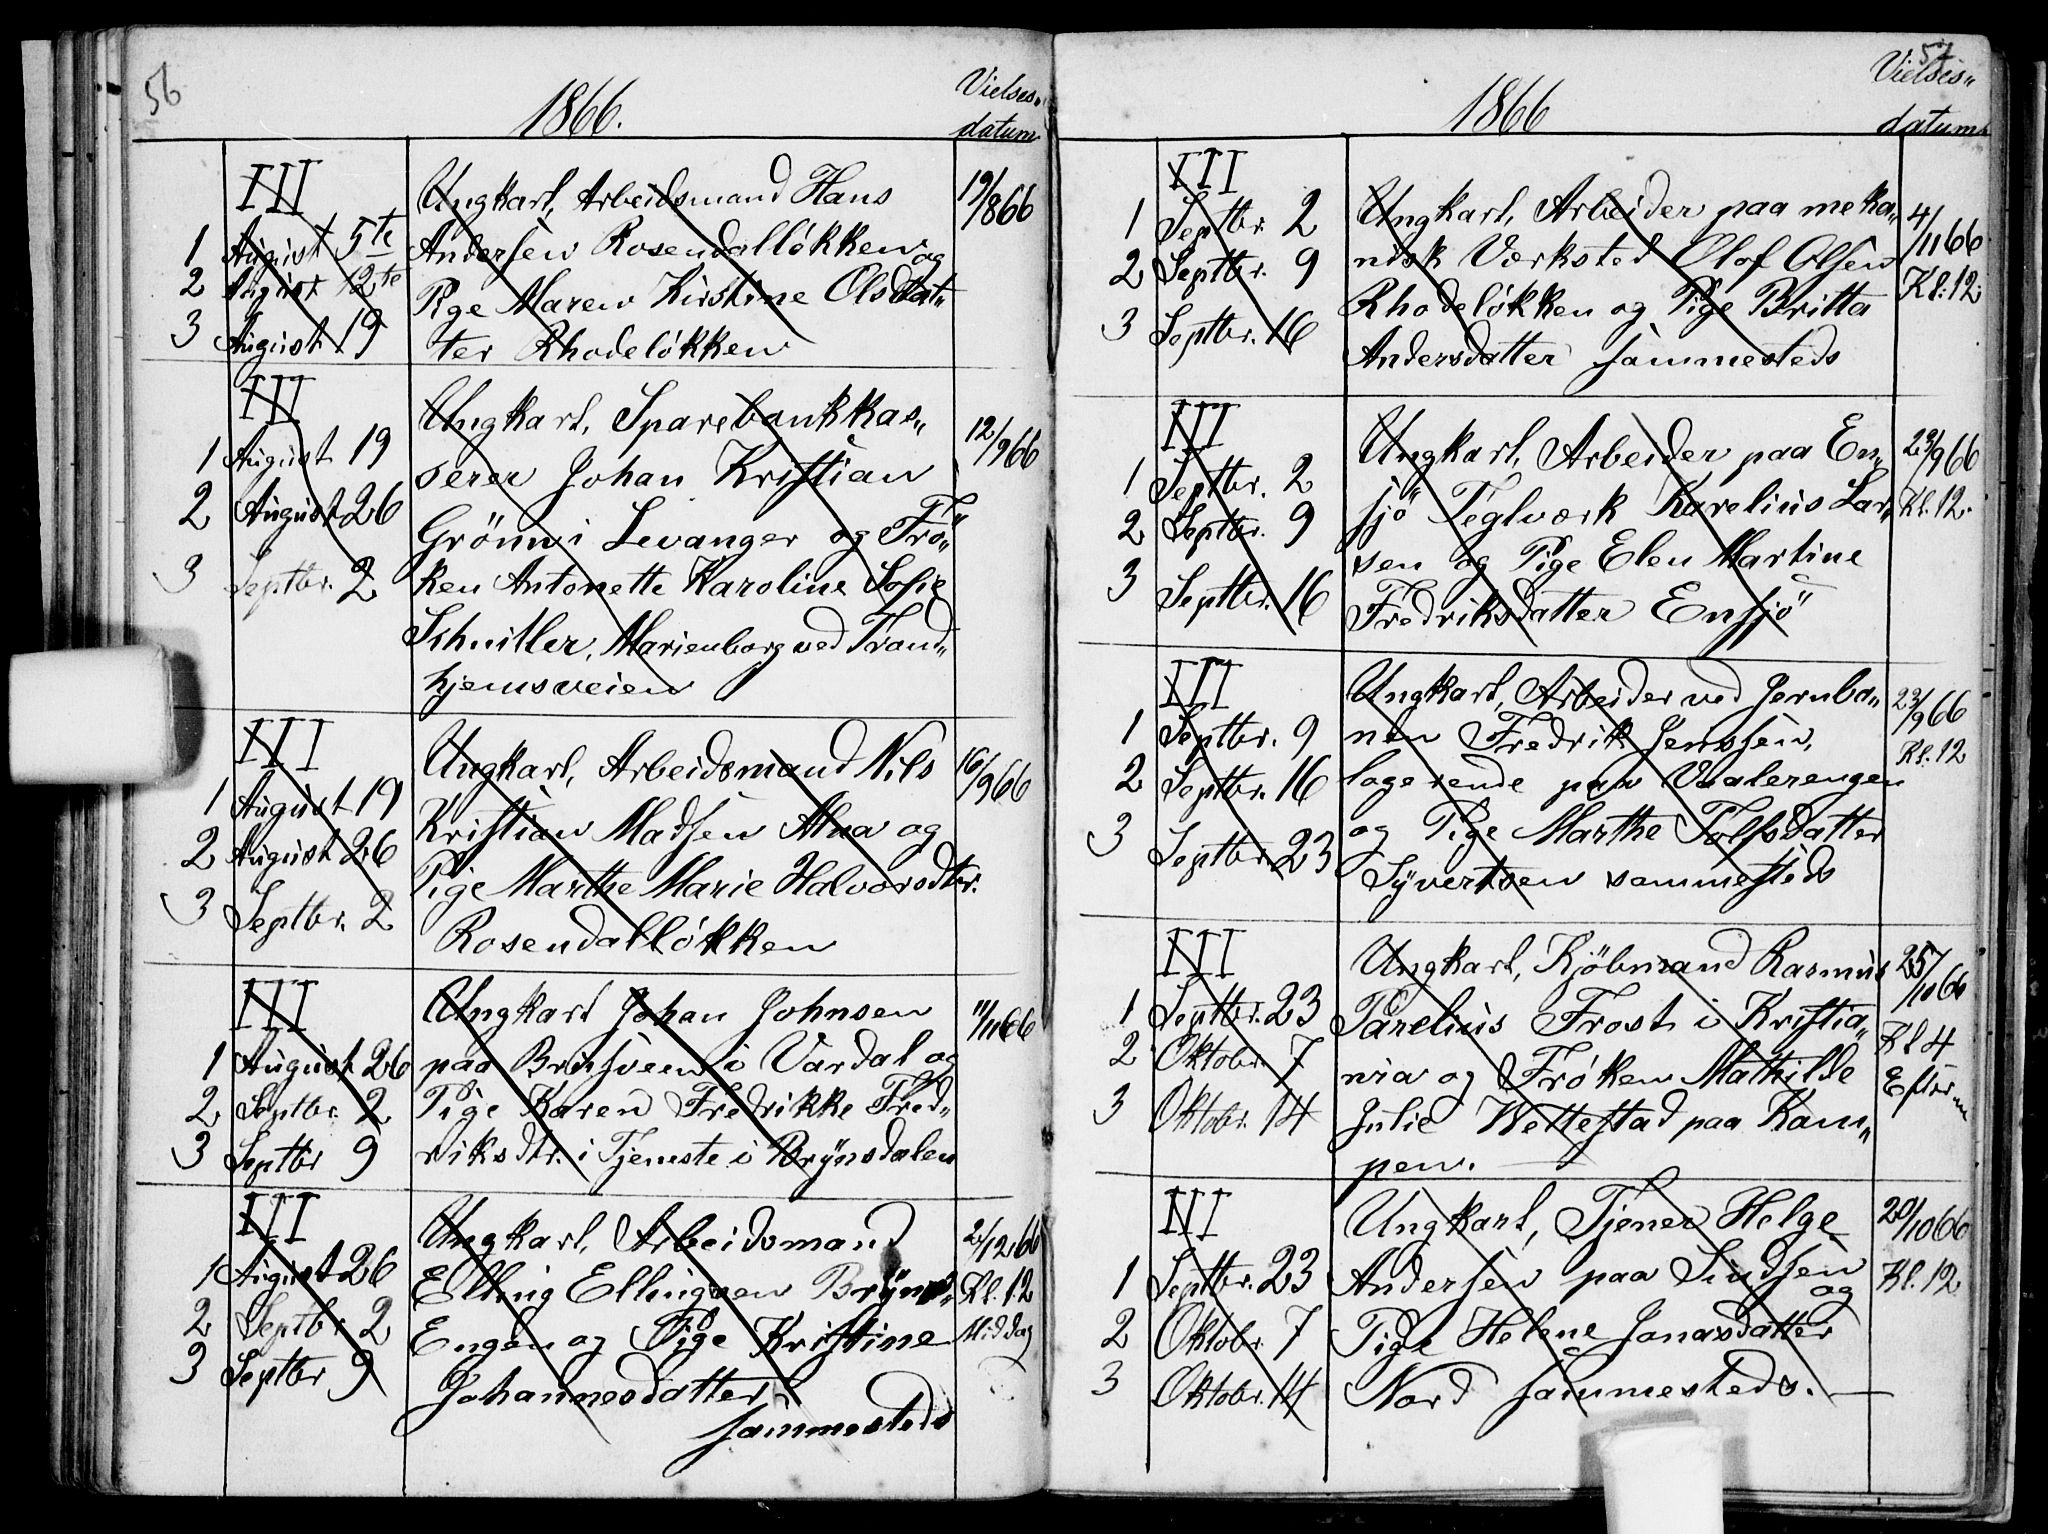 56
1866.
Vielses„
datum
III
1 August 5te
2 August 12te
3 August 19
Ungkarl, Arbeidsmand Hans
Andersen Rosendalløkken og
Pige Maren Kirstine Olsdat„
ter Rhodeløkken
19/866
III
1 August 19
2 August 26
3 Septbr. 2
Ungkarl, Sparebankkas„
serer Johan Kristian
Grönn i Levanger og Frö„
ken Antonette Karoline Sofie
Schnitler, Marienborg ved Trond„
hjemsveien
12/966
III
1 August 19
2 August 26
3 Septbr. 2
Ungkarl, Arbeidsmand Nils
Kristian Madsen Alna og
Pige Marthe Marie Halvorsdtr.
Rosendalløkken
16/966
III
1 August 26
2 Septbr. 2
3 Septbr 9
Ungkarl Johan Johnsen
paa i Vardal og
Pige Karen Fredrikke Fred„
riksdtr. i Tjeneste i Brynsdalen
11/1166
III
1 August 26
2 Septbr. 2
3 Septbr 9
Ungkarl, Arbeidsmand
Elling Ellingsen Bryns„
Engen og Pige Kristine
Johannesdatter
sammesteds
2/1266
Kl. 12
Middag
57
1866
Vielses„
datum
III
1 Septbr. 2
2 Septbr. 9
3 Septbr. 16
Ungkarl, Arbeider paa meka„
nisk Værksted Olof Olsen
Rhodeløkken og Pige Britta
Andersdatter sammesteds
4/1166
Kl. 12.
III
1 Septbr. 2
2 Septbr. 9
3 Septbr. 16
Ungkarl, Arbeider paa En„
sjö Teglværk Karelius Lar„
sen og Pige Elen Martine
Fredriksdatter Ensjö
23/966
Kl. 12.
III
1 Septbr. 9
2 Septbr. 16
3 Septbr. 23
Ungkarl, Arbeider ved Jernba„
nen Fredrik Jenssen,
logerende paa Vaalerengen
og Pige Marthe Tolfsdatter
Syvertsen sammesteds
23/966
Kl. 12
III
1 Septbr. 23
2 Oktobr. 7
3 Oktobr. 14
Ungkarl, Kjöbmand Rasmus
Parelius Frost i Kristia„
nia og Frøken Mathilde
Julie Wettestad paa Kam„
pen.
25/1066
Kl 4
Efterm
III
1 Septbr. 23
2 Oktobr. 7
3 Oktobr. 14
Ungkarl, Tjener Helge
Andersen paa Sindsen
og
Pige Helene Jonasdatter
Nord sammesteds.
20/1066
Kl. 12